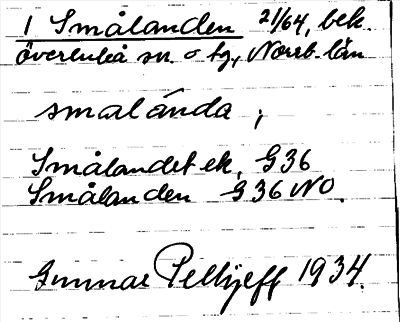 1 Smålanden 21/64, bek.
Överluleå sn. o tg, Norrb. län
smalánda ;
Smålandet ek. G36
Smålanden G36 NO
Gunnar Pellijeff 1934.